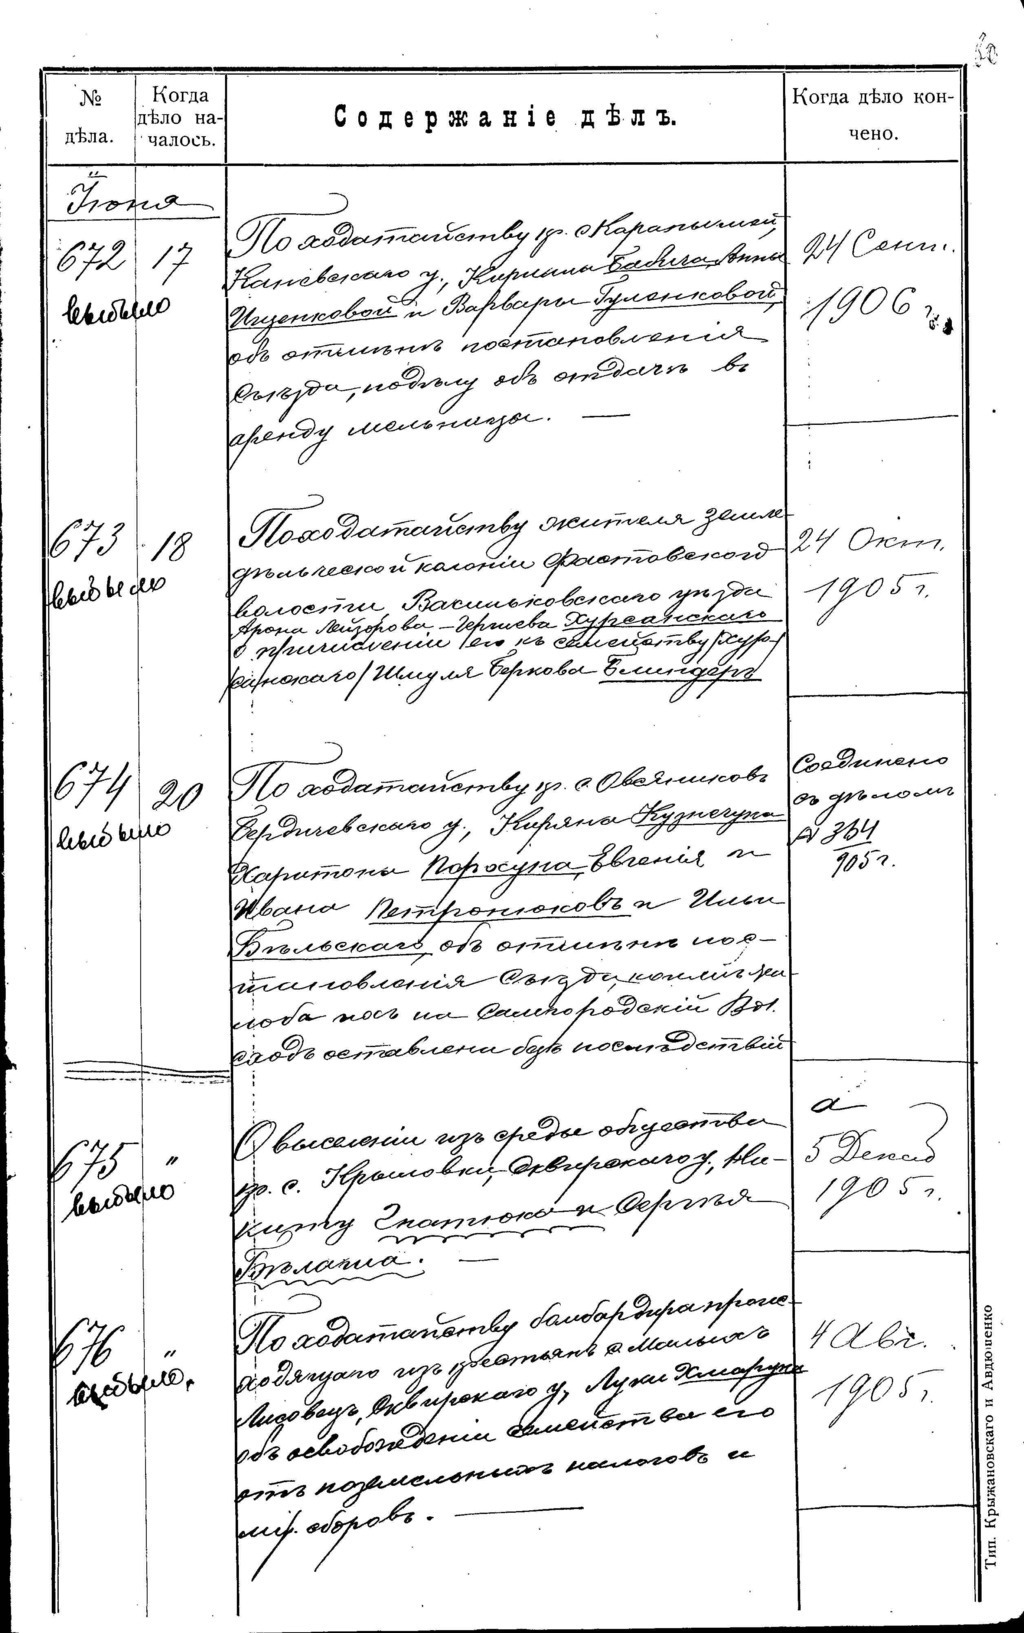 60
№ дѣла.
Когда дѣло началось.
Содержаніе дѣлъ.
Когда дѣло кончено.
Іюня
672 17
выбыло
По ходатайству кр. с. Карапышей,
Каневскаго у., Кирилла Бабича, Анны
Ищенковой и Варвары Гуленковой,
объ отмѣнѣ постановленія
Съѣзда, по дѣлу объ отдачѣ въ
аренду мельницы. —
24 Сент.
1906 г.
673 18
выбыло
По ходатайству жителя земле
дѣльческой колоніи Фастовской
волости Васильковскаго уѣзда
Арона Лейзорова – Гершева Хурсанскаго
о причисленіи его къ семейству /Хур
санскаго/ Шмуля Беркова Блиндеръ
24 Окт.
1905 г.
674 20
выбыло
По ходатайству кр. с. Овсяниковъ
Бердичевскаго у., Киряна Кузнечука
Харитона Порхуна, Евгенія и
Ивана Петронюковъ и Ильи
Бѣльскаго, объ отмѣнѣ пос-
тановленія Съѣзда, коимъ жа
лоба ихъ на Самгородскій Вол.
сходъ оставлена безъ послѣдствій
Соединено
съ дѣломъ
№ 364
905 г.
675 "
выбыло
О выселеніи изъ среды общества
кр. с. Крыловки, Сквирскаго у., Ни-
киту Гнатюка и Сергѣя
Бѣлаша. —
5 Декаб
1905 г.
676 "
выбыло.
По ходатайству бомбардира проис-
ходящаго изъ крестьянъ с. Малыхъ
Лисовецъ, Сквирскаго у., Луки Хмарука
объ освобожденіи семейства его
отъ поземельныхъ налоговъ и
мір. сборовъ. —
4 Авг.
1905 г.
Тип. Крыжановскаго и Авдюшенко